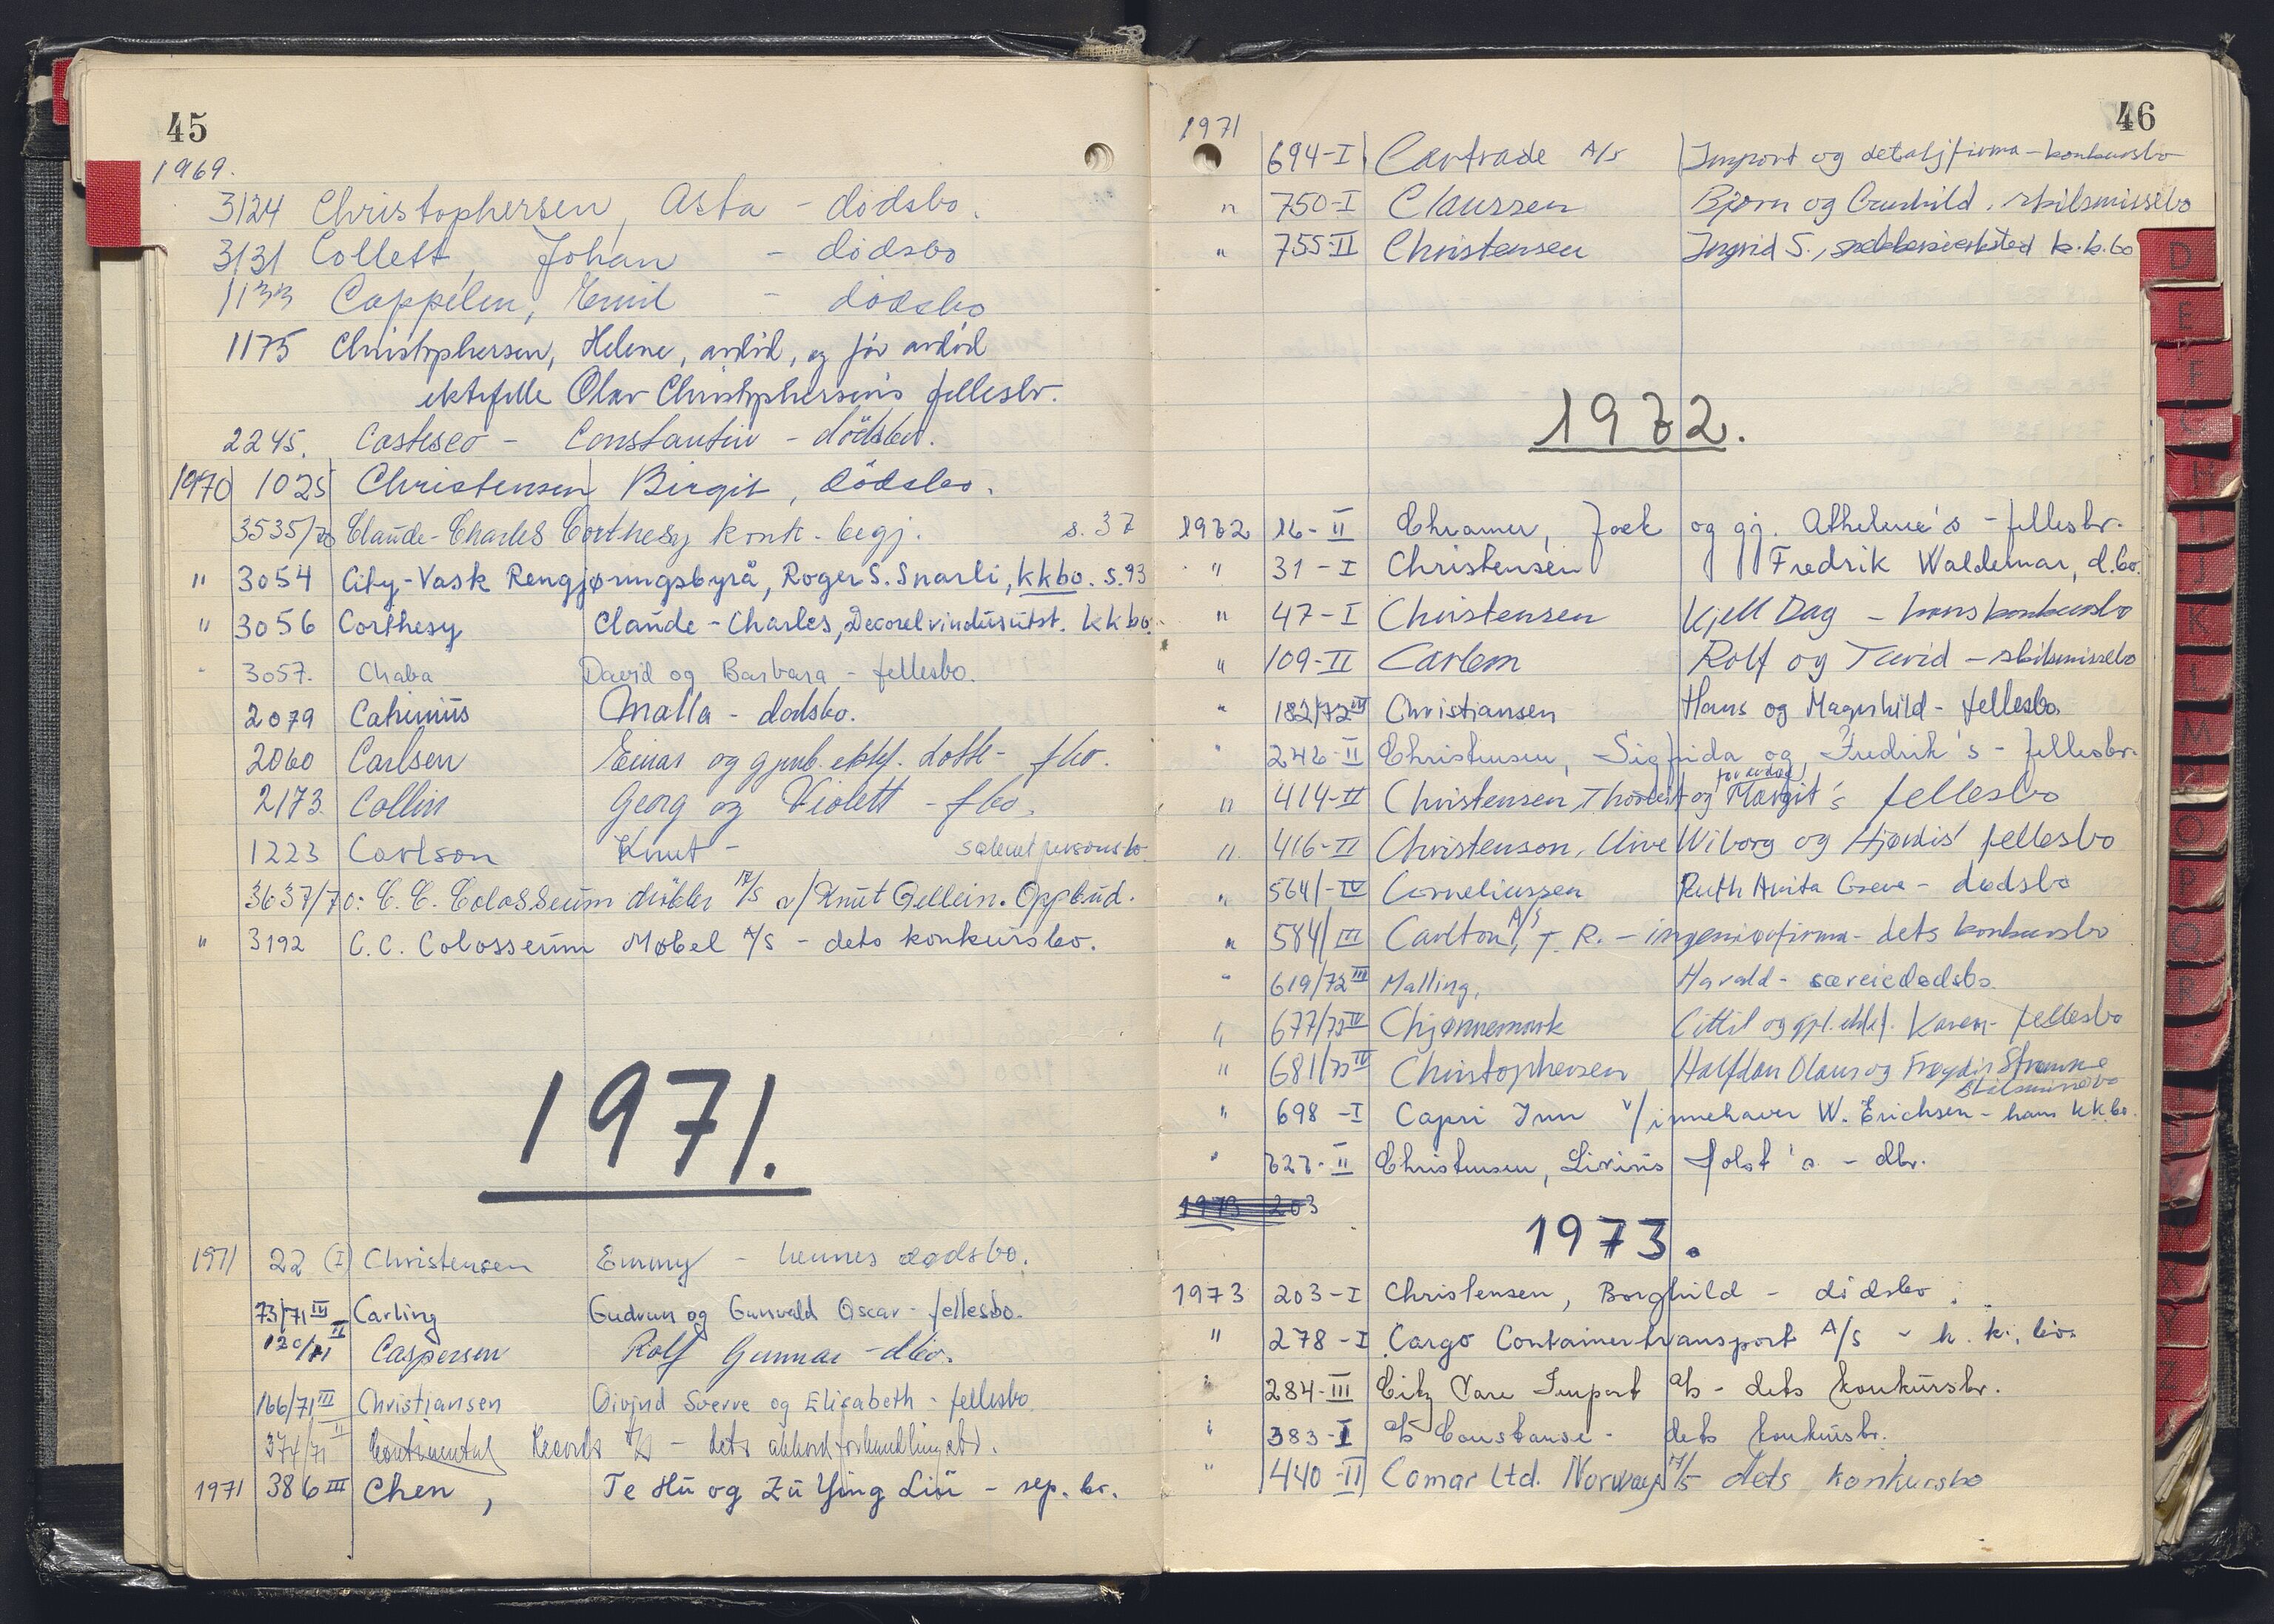 45
1969.
3124 Christophersen, Asta - dödsbo.
3131 Collett, Johan - dödsbo
1133 Cappelen, Emil - dödsbo
1175 Christophersen, Helene, avdöd, og för avdöd
ektefelle Olav Christophersen's fellesbo.
2245. Costesco - Constantin - dödsbo.
1970 1025 Christensen Birgit, dödsbo.
3535/70 Claude-Charles Corthesy konk-begj. s. 37
" 3054 City-Vask Rengjøringsbyrå, Roger S. Snarli, kkbo. s. 93
" 3056 Corthesy Claude-Charles, Decorel vindusutst. kkbo.
" 3057. Chaba David og Barbara - fellesbo.
2079 Cahinius Malla - dødsbo.
2060 Carlsen Einar og gjenl. ektef. Lotte - fbo.
2173 Collin Georg og Violett - fbo.
1223 Carlson Knut -
3637/70: C. C. Colosseum A/S v/ Knut Gellein. Oppbud.
" 3192 C.C. Colosseum Møbel A/S - dets konkursbo.
1971.
1971 22 (I) Christensen Emmy - hennes dødsbo.
73/71 III Carling Gudrun og Gunvald Oscar - fellesbo.
120/71 II Caspersen Rolf Gunnar - dbo.
166/71 III Christiansen Oivind Sverre og Elisabeth - fellesbo
374/71 II Continental Records A/S - dets akkordforhandlingsbo.
1971 386 III Chen, Te Hu og Zu Ying Liu - sep. bo.
46
1971 694-I Cartrade A/S Import og detaljfirma - konkursbo
" 750-I Claussen Bjørn og Gunhild, skilsmissebo
" 755-II Christensen Ingrid S., k.k.bo
1972.
1972 16-II Chramer, Jack og gj. Athelene's - fellesbo.
" 31-I Christensen Fredrik Waldemar, d.bo.
" 47-I Christensen Kjell Dag - hans konkursbo
" 109-II Carlem Rolf og Turid - skilsmissebo
" 182/72 III Christiansen Hans og Magnhild - fellesbo.
" 246-II Christensen, Sigfrida og Fredrik's - fellesbo.
" 414-II Christensen, Thorleif og før avdød Margit's fellesbo
" 416-II Christenson, Clive Wiborg og Hjørdis' fellesbo
" 564/-IV Corneliussen Ruth Anita Greve - dødsbo
" 584/III Carlton A/S, T. R. - ingeniørfirma - dets konkursbo
" 619/72 III Malling, Harald - særeiedødsbo.
" 677/72 IV Chjønnemark Cittil og gjl. ektef. Karen - fellesbo
" 681/72 IV Christophersen Halfdan Olaus og Frøydis Strømme
skilsmissebo
" 698-I Capri Inn v/ innehaver W. Erichsen - hans kkbo.
" 727-II Christensen, Livinis Holst's - dbo.
1973 203
1973.
1973 203-I Christensen, Borghild - dödsbo.
" 278-I Cargo Containertransport A/S - k.k. bo.
" 284-III City Vare Import a/s - dets konkursbo.
" 383-I a/s Constanse - dets konkursbo.
" 440-II Comar Ltd. Norway A/S dets konkursbo
D
E
F
G
H
I
J
K
L
M
O
P
Q
R
X
Y
Z